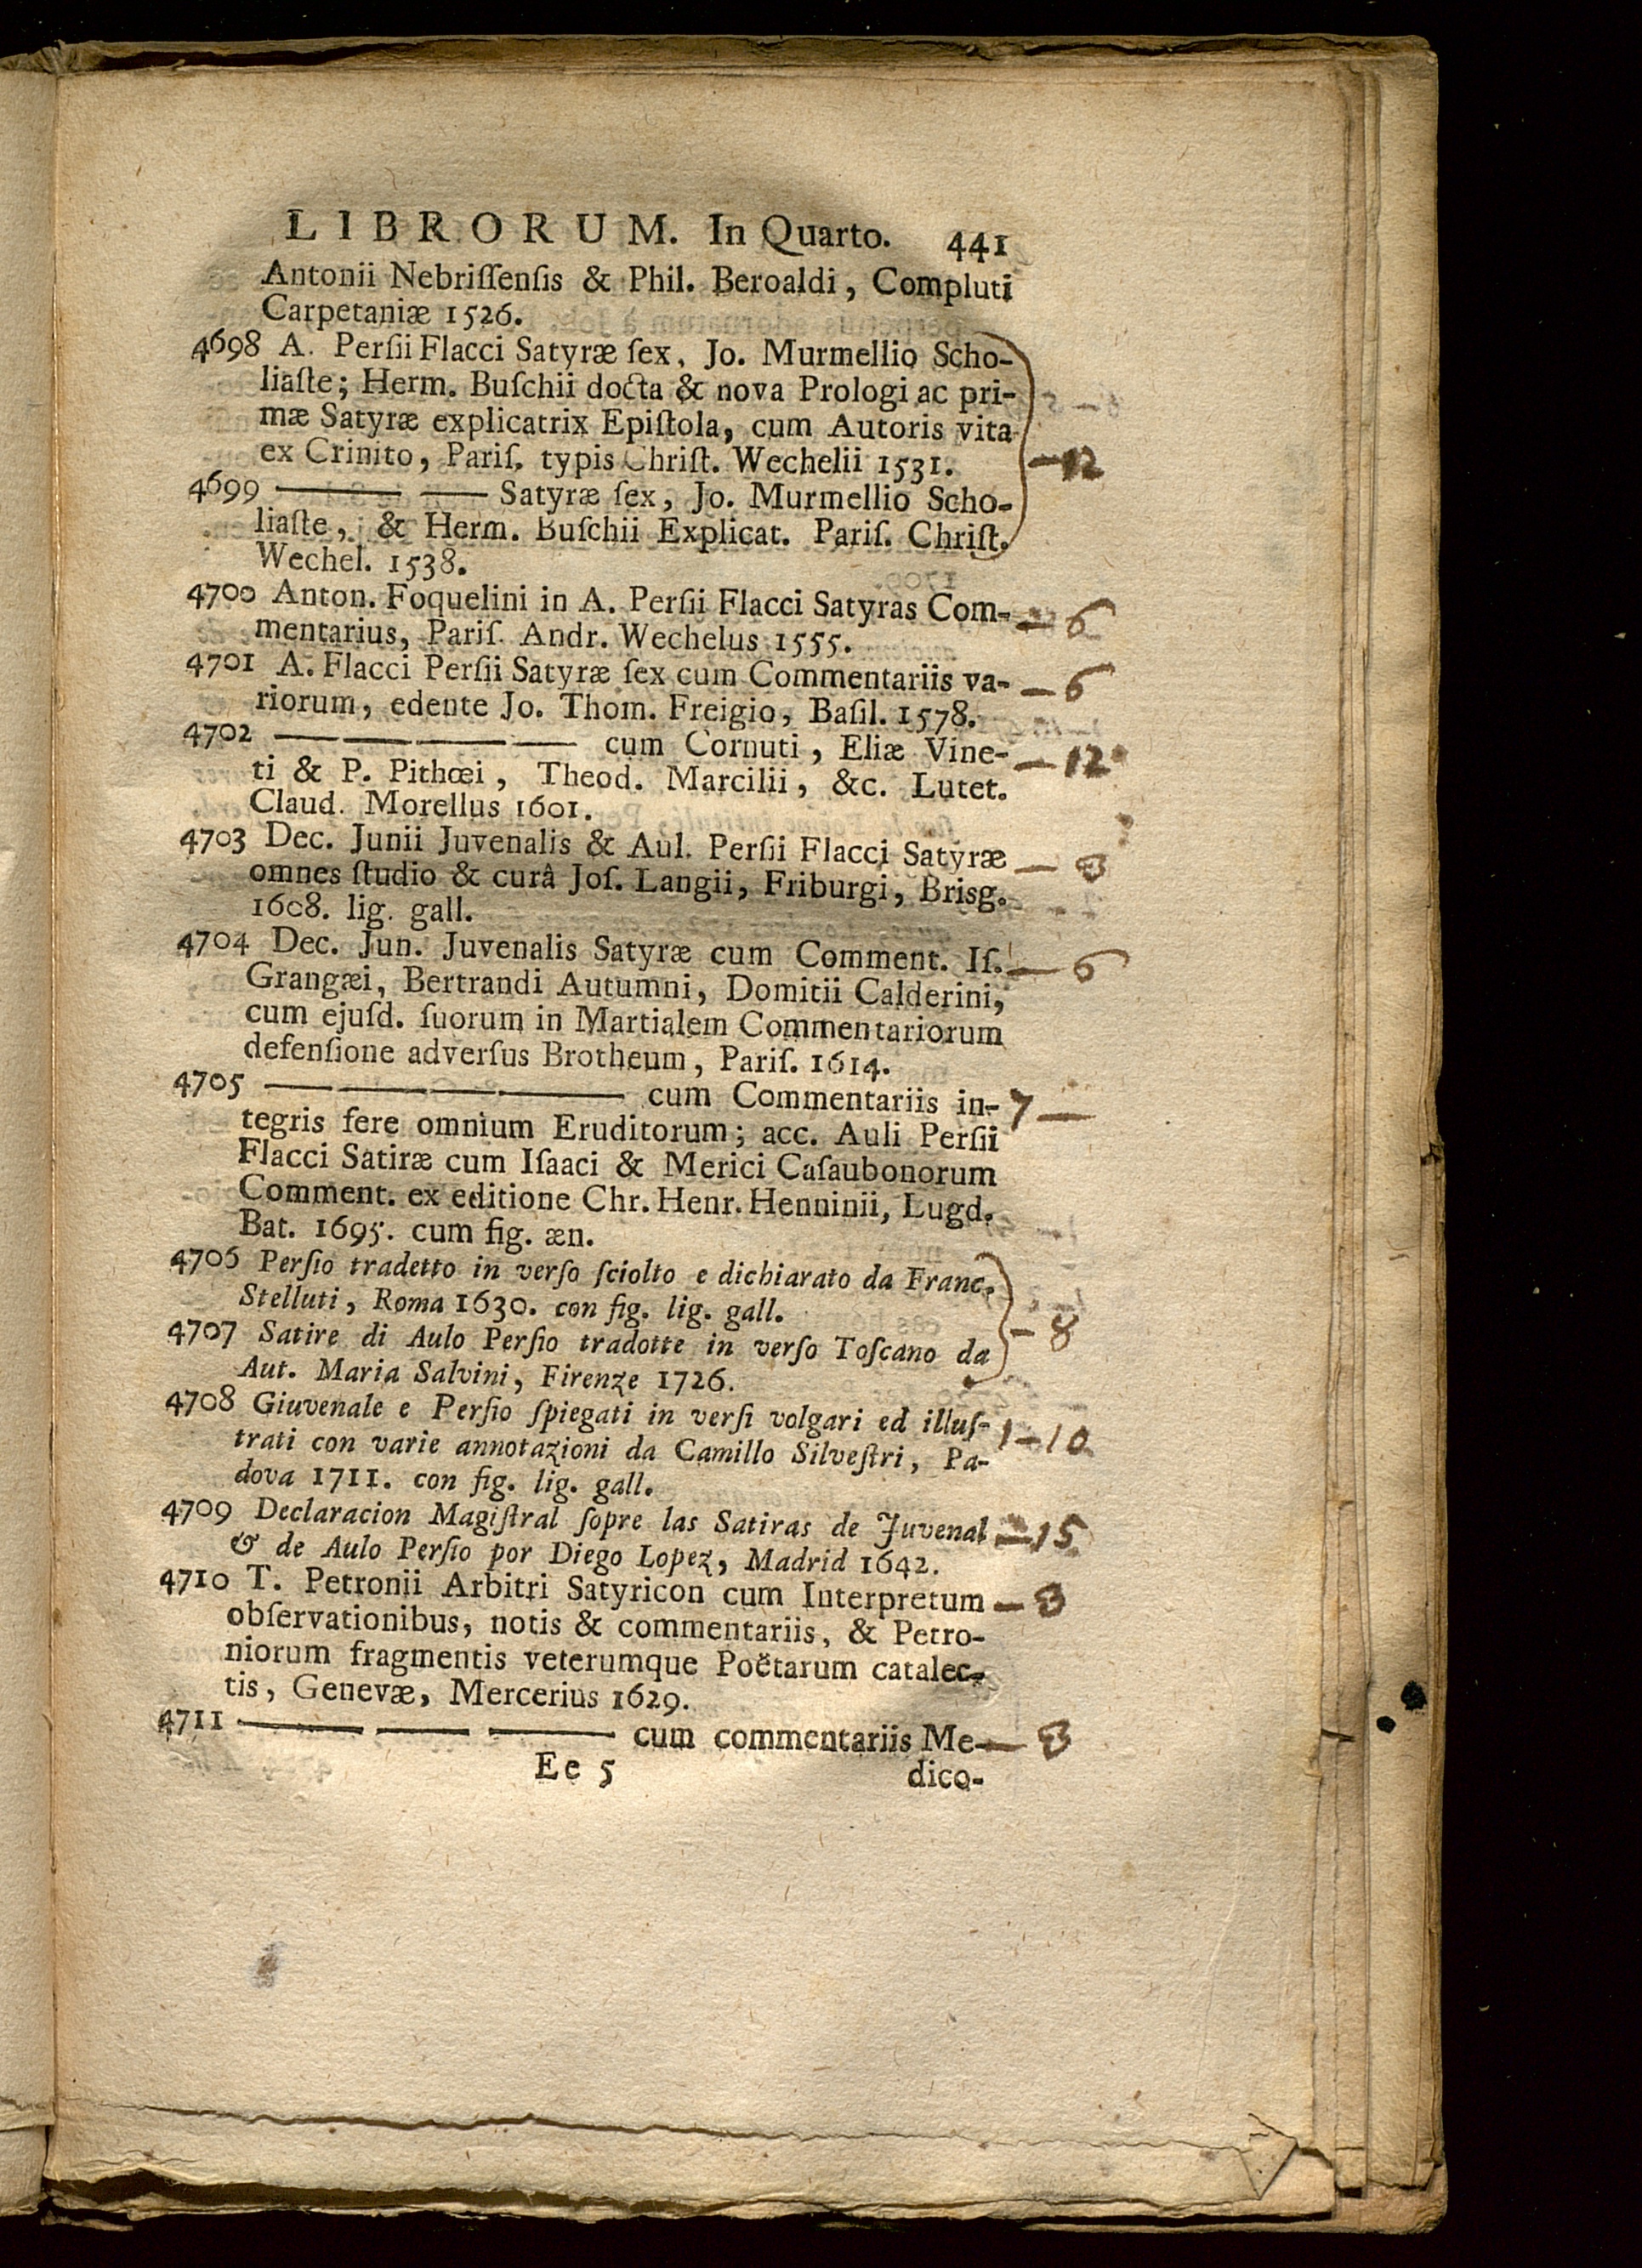 LIBRORUM. In Quarto. 441
Antonii Nebriſſenſis & Phil. Beroaldi, Compluti
Carpetaniæ 1526.
4698 A. Perſii Flacci Satyræ ſex, Jo. Murmellio Scho-
liaſte; Herm. Buſchii docta & nova Prologi ac pri-
mæ Satyræ explicatrix Epiſtola, cum Autoris vita
ex Crinito, Pariſ. typis Chriſt. Wechelii 1531. —12
4699 —— —— Satyræ ſex, Jo. Murmellio Scho-
liaſte, & Herm. Buſchii Explicat. Pariſ. Chriſt.
Wechel. 1538.
4700 Anton. Foquelini in A. Perſii Flacci Satyras Com- — 6
mentarius, Pariſ. Andr. Wechelus 1555.
4701 A. Flacci Perſii Satyræ ſex cum Commentariis va- — 6
riorum, edente Jo. Thom. Freigio, Baſil. 1578.
4702 —— —— —— —— cum Cornuti, Eliæ Vine- — 12
ti & P. Pithœi, Theod. Marcilii, &c. Lutet.
Claud. Morellus 1601.
4703 Dec. Junii Juvenalis & Aul. Perſii Flacci Satyræ — 3
omnes ſtudio & curâ Joſ. Langii, Friburgi, Brisg.
1608. lig. gall.
4704 Dec. Jun. Juvenalis Satyræ cum Comment. Iſ. — 6
Grangæi, Bertrandi Autumni, Domitii Calderini,
cum ejuſd. ſuorum in Martialem Commentariorum
defenſione adverſus Brotheum, Pariſ. 1614.
4705 —— —— —— —— cum Commentariis in- 7 —
tegris fere omnium Eruditorum; acc. Auli Perſii
Flacci Satiræ cum Iſaaci & Merici Caſaubonorum
Comment. ex editione Chr. Henr. Henninii, Lugd.
Bat. 1695. cum fig. æn.
4706 Perſio tradetto in verſo ſciolto e dichiarato da Franc.
Stelluti, Roma 1630. con fig. lig. gall.
4707 Satire di Aulo Perſio tradotte in verſo Toſcano da — 8
Aut. Maria Salvini, Firenze 1726.
4708 Giuvenale e Perſio ſpiegati in verſi volgari ed illuſ- 1—10
trati con varie annotazioni da Camillo Silveſtri, Pa-
dova 1711. con fig. lig. gall.
4709 Declaracion Magiſtral ſopre las Satiras de Juvenal —15
& de Aulo Perſio por Diego Lopez, Madrid 1642.
4710 T. Petronii Arbitri Satyricon cum Interpretum — 3
obſervationibus, notis & commentariis, & Petro-
niorum fragmentis veterumque Poëtarum catalec-
tis, Genevæ, Mercerius 1629.
4711 —— —— —— cum commentariis Me- — 3
Ee 5 dico-